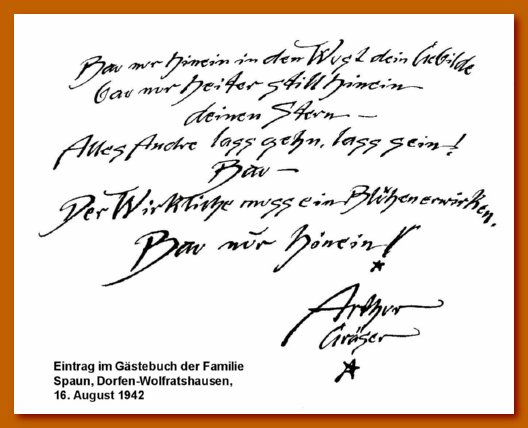 Bau nur hinein in den Wust dein Gebilde
bau nur heiter still hinein
deinen Stern –
Alles Andre lass gehn, lass sein!
Bau –
Der Wirkliche muss ein Blühen erwirken.
Bau nur hinein!
Arthur
Gräser
Eintrag im Gästebuch der Familie
Spaun, Dorfen-Wolfratshausen,
16. August 1942